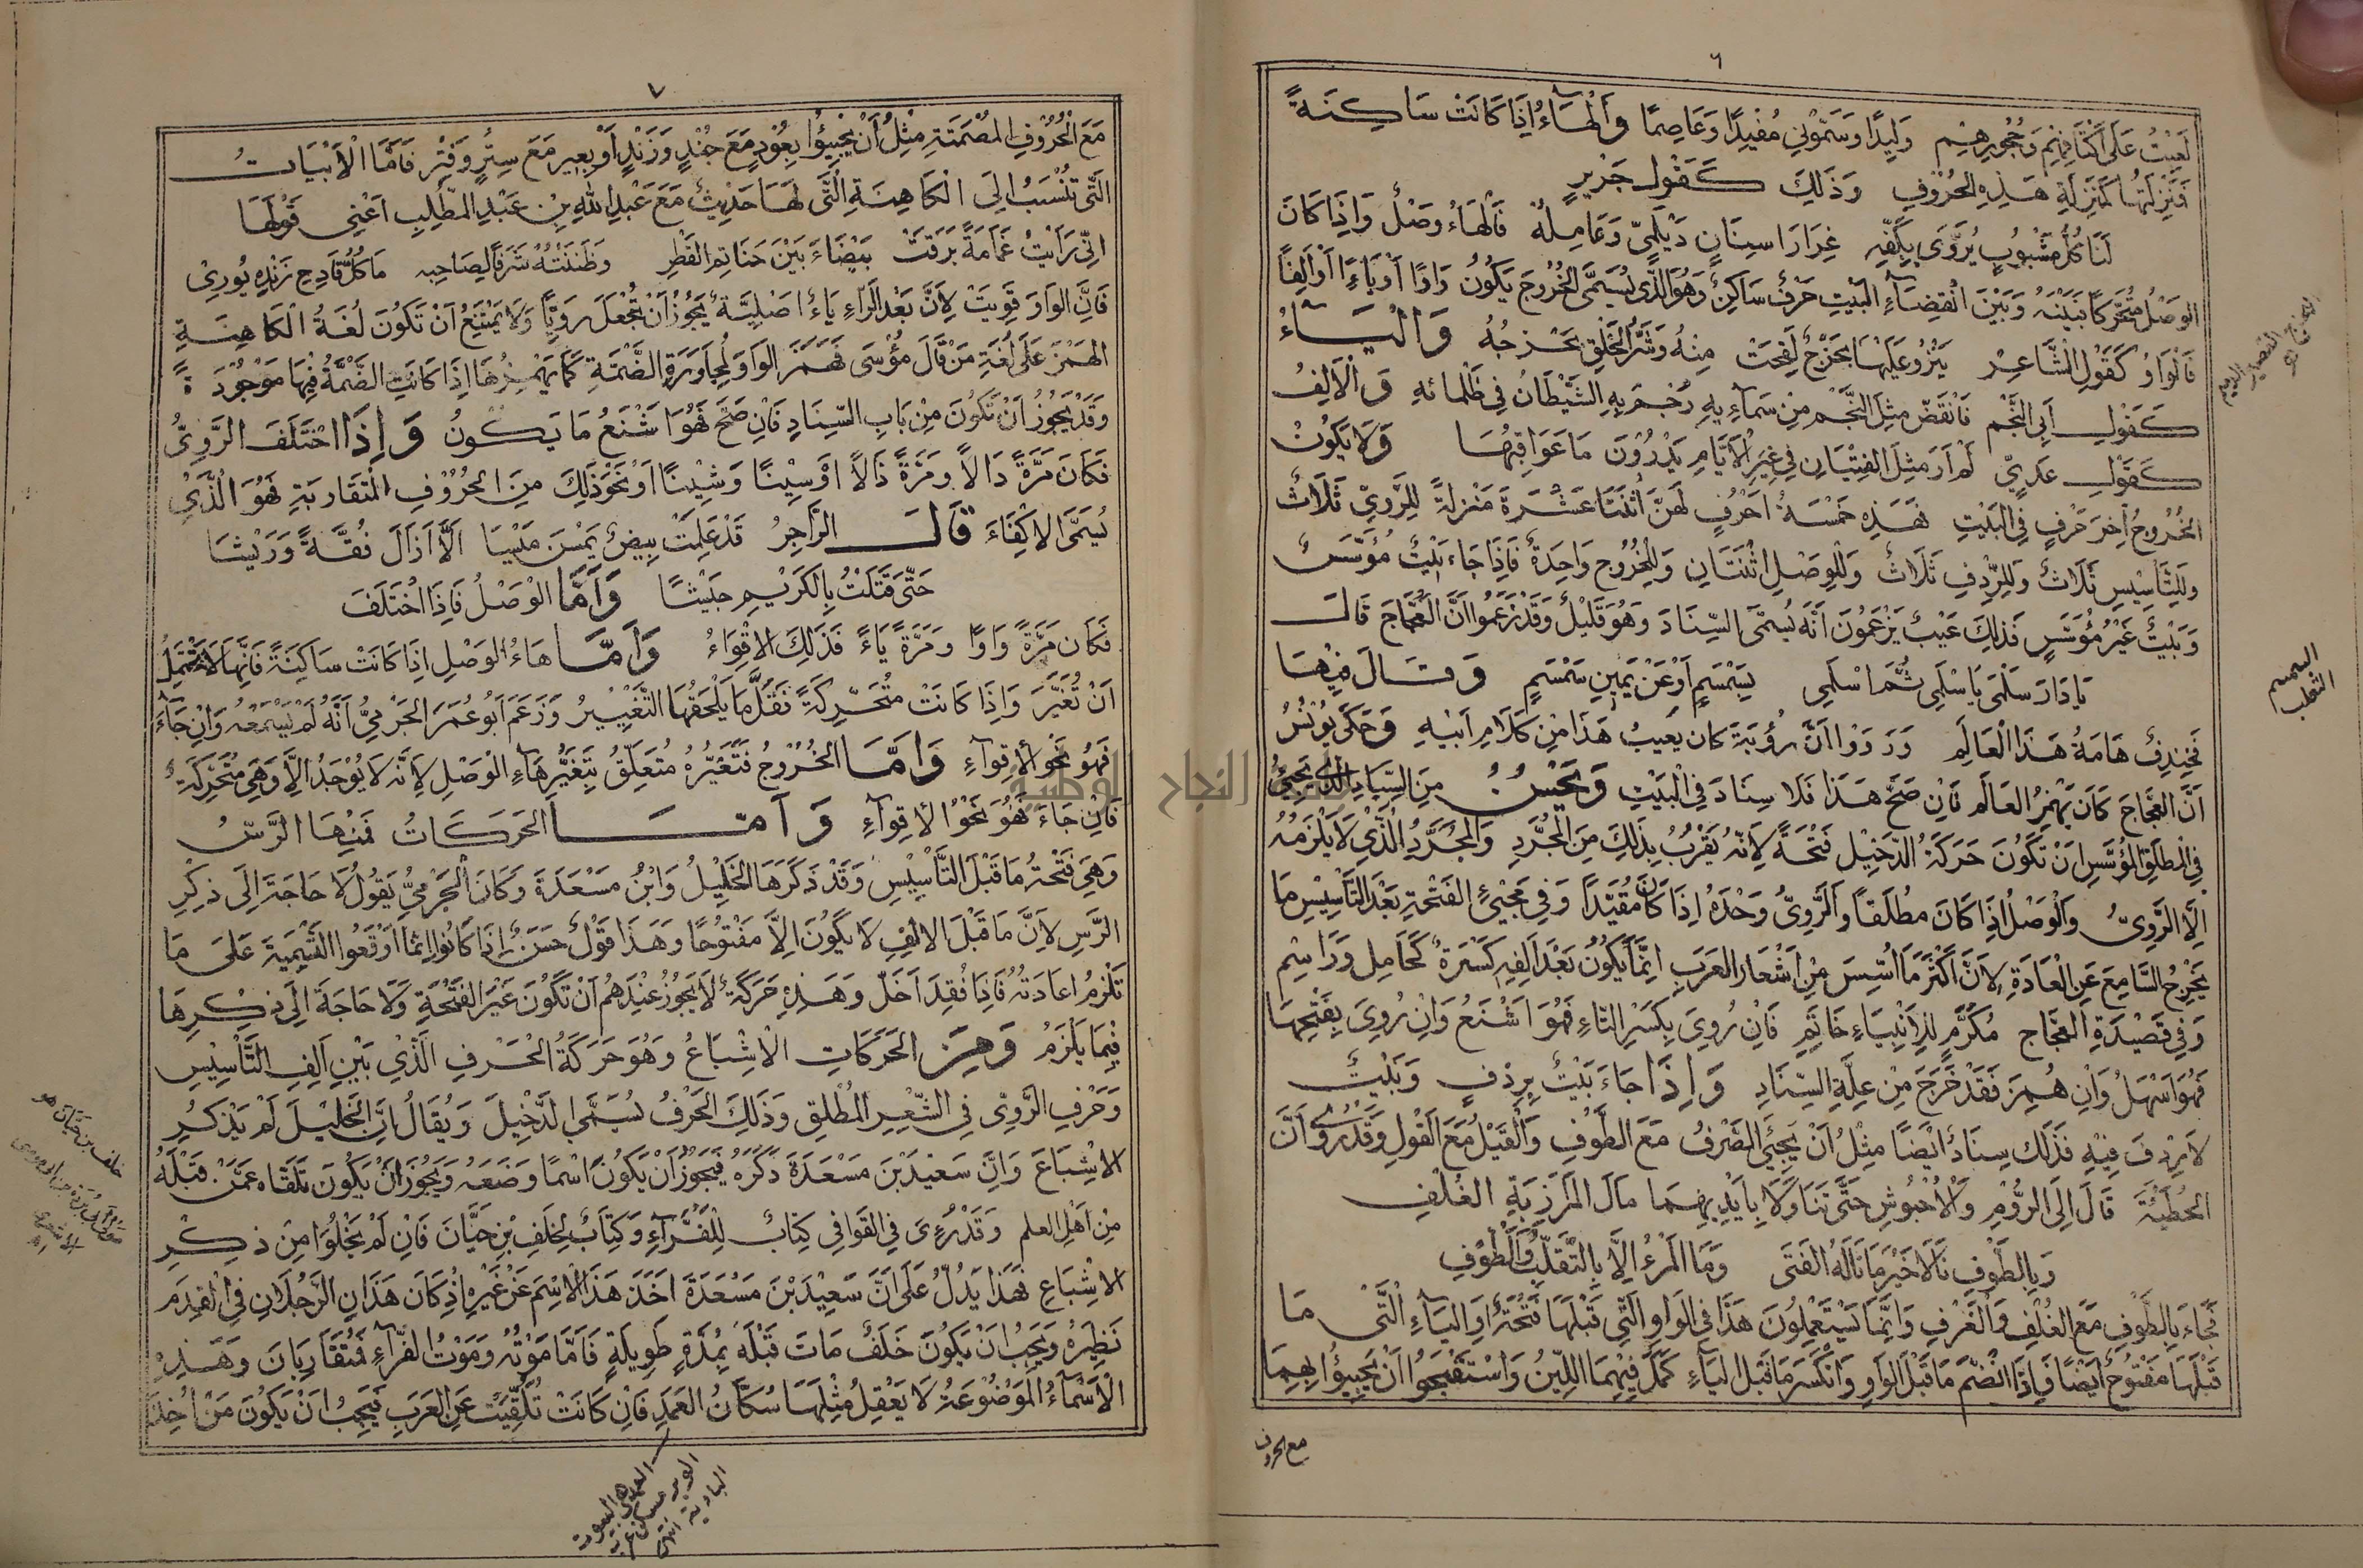 ٦
لَعِبْتُ عَلَى أَكْتَافِهِمْ وَحُجُورِهِمْ وَلِيدًا وَسَمَّوْنِي مُفِيدًا وَعَاصِمًا وَالْهَاءُ إِذَا كَانَتْ سَاكِنَةً
فَمَنْزِلَتُهَا كَمَنْزِلَةِ هَذِهِ الْحُرُوفِ وَذَلِكَ كَقَوْلِ جَرِيرٍ
لَنَا كُلُّ مَشْبُوبٍ يُرَوَّى بِكَفِّهِ غِرَارَا سِنَانٍ دَيْلَمِيٍّ وَعَامِلُهْ فَالْهَاءُ وَصْلٌ وَإِذَا كَانَ
الْوَصْلُ مُتَحَرِّكًا بَيْنَهُ وَبَيْنَ انْقِضَاءِ الْبَيْتِ حَرْفٌ سَاكِنٌ وَهُوَ الَّذِي يُسَمَّى الْخُرُوجَ يَكُونُ وَاوًا أَوْ يَاءً أَوْ أَلِفًا
فَالْوَاوُ كَقَوْلِ الشَّاعِرْ يَنْزُو عَلَيْهَا بَحْزَجٌ لَقِحَتْ مِنْهُ وَشَرُّ الْخَلْقِ بَحْزَجُهُ وَالْيَاءُ
كَقَوْلِ أَبِي النَّجْمِ فَانْقَضَّ مِثْلَ النَّجْمِ مِنْ سَمَائِهِ رُجِمَ بِهِ الشَّيْطَانُ فِي ظَلْمَائِهِ وَالْأَلِفُ
كَقَوْلِ عَدِيٍّ لَمْ أَرَ مِثْلَ الْفِتْيَانِ فِي غِيَرِ الْأَيَّامِ يَدْرُونَ مَا عَوَاقِبُهَا وَلَا يَكُونُ
الْخُرُوجُ آخِرَ حَرْفٍ فِي الْبَيْتِ فَهَذِهِ خَمْسَةُ أَحْرُفٍ لَهُنَّ اثْنَتَا عَشْرَةَ مَنْزِلَةً لِلرَّوِيِّ ثَلَاثٌ
وَلِلتَّأْسِيسِ ثَلَاثٌ وَلِلرِّدْفِ ثَلَاثٌ وَلِلْوَصْلِ اثْنَتَانِ وَلِلْخُرُوجِ وَاحِدَةٌ فَإِذَا جَاءَ بَيْتٌ مُؤَسَّسٌ
وَبَيْتٌ غَيْرُ مُؤَسَّسٍ فَذَلِكَ عَيْبٌ يَزْعُمُونَ أَنَّهُ يُسَمَّى السِّنَادَ وَهُوَ قَلِيلٌ وَقَدْ زَعَمُوا أَنَّ الْعَجَّاجَ قَالَ
يَا دَارَ سَلْمَى يَا سْلَمِي ثُمَّ اسْلَمِي بِسَمْسَمٍ أَوْ عَنْ يَمِينِ سَمْسَمِ وَقَالَ فِيهَا
فَخِنْدِفٌ هَامَةُ هَذَا الْعَالَمِ وَرَوَوْا أَنَّ رُؤْبَةَ كَانَ يَعِيبُ هَذَا مِنْ كَلَامِ أَبِيهِ وَحَكَى يُونُسُ
أَنَّ الْعَجَّاجَ كَانَ يَهْمِزُ الْعَالَمَ فَإِنْ صَحَّ هَذَا فَلَا سِنَادَ فِي الْبَيْتِ وَيَحْسُنُ مِنَ السِّنَادِ الَّذِي يَجِيءُ
فِي الْمُطْلَقِ الْمُؤَسَّسِ أَنْ تَكُونَ حَرَكَةُ الدَّخِيلِ فَتْحَةً لِأَنَّهُ يَقْرُبُ بِذَلِكَ مِنَ الْمُجَرَّدِ وَالْمُجَرَّدُ الَّذِي لَا يَلْزَمُهُ
إِلَّا الرَّوِيُّ وَالْوَصْلُ إِذَا كَانَ مُطْلَقًا وَالرَّوِيُّ وَحْدَهُ إِذَا كَانَ مُقَيَّدًا وَفِي مَجِيءِ الْفَتْحَةِ بَعْدَ التَّأْسِيسِ مَا
يُخْرِجُ السَّامِعَ عَنِ الْعَادَةِ لِأَنَّ أَكْثَرَ مَا أُسِّسَ مِنْ أَشْعَارِ الْعَرَبِ إِنَّمَا يَكُونُ بَعْدَ أَلِفِهِ كَسْرَةٌ كَحَامِلٍ وَرَاسِمٍ
وَفِي قَصِيدَةِ الْعَجَّاجِ مُكَرَّمٍ لِلْأَنْبِيَاءِ خَاتِمِ فَإِنْ رُوِيَ بِكَسْرِ التَّاءِ فَهُوَ أَشْنَعُ وَإِنْ رُوِيَ بِفَتْحِهَا
فَهُوَ أَسْهَلُ وَإِنْ هُمِزَ فَقَدْ خَرَجَ مِنْ عِلَّةِ السِّنَادِ وَإِذَا جَاءَ بَيْتٌ بِرِدْفٍ وَبَيْتٌ
لَا رِدْفَ فِيهِ فَذَلِكَ سِنَادٌ أَيْضًا مِثْلُ أَنْ يَجِيءَ الصَّرْفُ مَعَ الطَّوْفِ وَالْقَتْلُ مَعَ الْقَوْلِ وَقَدْ رُوِيَ أَنَّ
الْحُطَيْئَةَ قَالَ إِلَى الرُّومِ وَالْأُحْبُوشِ حَتَّى تَنَاوَلَا بِأَيْدِيهِمَا مَالَ الْمَرَازِبَةِ الْغُلْفِ
وَبِالطَّوْفِ نَالَا خَيْرَ مَا نَالَهُ الْفَتَى وَمَا الْمَرْءُ إِلَّا بِالتَّقَلُّبِ وَالطَّوْفِ
فَجَاءَ بِالطَّوْفِ مَعَ الْغُلْفِ وَالْغَرْفِ وَإِنَّمَا يَسْتَعْمِلُونَ هَذَا فِي الْوَاوِ الَّتِي قَبْلَهَا فَتْحَةٌ أَوِ الْيَاءِ الَّتِي مَا
قَبْلَهَا مَفْتُوحٌ أَيْضًا فَإِذَا انْضَمَّ مَا قَبْلَ الْوَاوِ وَانْكَسَرَ مَا قَبْلَ الْيَاءِ كَمَلَ فِيهِمَا اللِّينُ وَاسْتَقْبَحُوا أَنْ يَجِيئُوا بِهِمَا
مع الحروف
السمسم
الثعلب
٧
مَعَ الْحُرُوفِ الْمُصْمَتَةِ مِثْلُ أَنْ يَجِيئُوا بِعُودٍ مَعَ جُنْدٍ وَزَنْدٍ أَوْ بِعِيرٍ مَعَ سِتْرٍ وَفِتْرٍ فَأَمَّا الْأَبْيَاتُ
الَّتِي تُنْسَبُ إِلَى الْكَاهِنَةِ الَّتِي لَهَا حَدِيثٌ مَعَ عَبْدِ اللهِ بْنِ عَبْدِ الْمُطَّلِبِ أَعْنِي قَوْلَهَا
إِنِّي رَأَيْتُ غَمَامَةً بَرَقَتْ بَيْضَاءَ بَيْنَ حَنَاتِمِ الْقَطْرِ وَظَنَنْتُهُ شَرَفًا لِصَاحِبِهِ مَا كُلُّ قَادِحِ زَنْدِهِ يُورِي
فَإِنَّ الْوَاوَ قَوِيَتْ لِأَنَّ بَعْدَ الرَّاءِ يَاءً أَصْلِيَّةً يَجُوزُ أَنْ تُجْعَلَ رَوِيًّا وَلَا يَمْتَنِعُ أَنْ تَكُونَ لُغَةُ الْكَاهِنَةِ
الْهَمْزَ عَلَى لُغَةِ مَنْ قَالَ مُؤْسَى فَهَمَزَ الْوَاوَ لِمُجَاوَرَةِ الضَّمَّةِ كَمَا يَهْمِزُهَا إِذَا كَانَتِ الضَّمَّةُ فِيهَا مَوْجُودَةً
وَقَدْ يَجُوزُ أَنْ تَكُونَ مِنْ بَابِ السِّنَادِ فَإِنْ صَحَّ فَهُوَ أَشْنَعُ مَا يَكُونُ وَإِذَا اخْتَلَفَ الرَّوِيُّ
فَكَانَ مَرَّةً دَالًا وَمَرَّةً ذَالًا أَوْ سِينًا وَشِينًا أَوْ نَحْوَ ذَلِكَ مِنَ الْحُرُوفِ الْمُتَقَارِبَةِ فَهُوَ الَّذِي
يُسَمَّى الْإِكْفَاءَ قَالَ الرَّاجِزُ قَدْ عَلِمَتْ بِيضٌ يَمِسْنَ مَيْسَا أَلَّا أَزَالَ نُقَّةً وَرَيْشَا
حَتَّى قَتَلْتُ بِالْكَرِيمِ جَيْشًا وَأَمَّا الْوَصْلُ فَإِذَا اخْتَلَفَ
فَكَانَ مَرَّةً وَاوًا وَمَرَّةً يَاءً فَذَلِكَ الْإِقْوَاءُ وَأَمَّا هَاءُ الْوَصْلِ إِذَا كَانَتْ سَاكِنَةً فَإِنَّهَا لَا تَحْتَمِلُ
أَنْ تُغَيَّرَ وَإِذَا كَانَتْ مُتَحَرِّكَةً فَقَلَّمَا يَلْحَقُهَا التَّغْيِيرُ وَزَعَمَ أَبُو عُمَرَ الْجَرْمِيُّ أَنَّهُ لَمْ يَسْمَعْهُ وَإِنْ جَاءَ
فَهُوَ نَحْوُ الْإِقْوَاءِ وَأَمَّا الْخُرُوجُ فَتَغَيُّرُهُ مُتَعَلِّقٌ بِتَغَيُّرِ هَاءِ الْوَصْلِ لِأَنَّهُ لَا يُوجَدُ إِلَّا وَهِيَ مُتَحَرِّكَةٌ
فَإِنْ جَاءَ فَهُوَ نَحْوُ الْإِقْوَاءِ وَأَمَّا الْحَرَكَاتُ فَمِنْهَا الرَّسُّ
وَهِيَ فَتْحَةُ مَا قَبْلَ التَّأْسِيسِ وَقَدْ ذَكَرَهَا الْخَلِيلُ وَابْنُ مَسْعَدَةَ وَكَانَ الْجَرْمِيُّ يَقُولُ لَا حَاجَةَ إِلَى ذِكْرِ
الرَّسِّ لِأَنَّ مَا قَبْلَ الْأَلِفِ لَا يَكُونُ إِلَّا مَفْتُوحًا وَهَذَا قَوْلٌ حَسَنٌ إِذَا كَانُوا إِنَّمَا أَوْقَعُوا التَّسْمِيَةَ عَلَى مَا
تَلْزَمُ إِعَادَتُهُ فَإِذَا فُقِدَ أَخَلَّ وَهَذِهِ حَرَكَةٌ لَا يَجُوزُ عِنْدَهُمْ أَنْ تَكُونَ غَيْرَ الْفَتْحَةِ وَلَا حَاجَةَ إِلَى ذِكْرِهَا
فِيمَا يَلْزَمُ وَمِنَ الْحَرَكَاتِ الْإِشْبَاعُ وَهُوَ حَرَكَةُ الْحَرْفِ الَّذِي بَيْنَ أَلِفِ التَّأْسِيسِ
وَحَرْفِ الرَّوِيِّ فِي الشِّعْرِ الْمُطْلَقِ وَذَلِكَ الْحَرْفُ يُسَمَّى الدَّخِيلَ وَيُقَالُ إِنَّ الْخَلِيلَ لَمْ يَذْكُرِ
الْإِشْبَاعَ وَإِنَّ سَعِيدَ بْنَ مَسْعَدَةَ ذَكَرَهُ فَيَجُوزُ أَنْ يَكُونَ اسْمًا وَضَعَهُ وَيَجُوزُ أَنْ يَكُونَ تَلَقَّاهُ عَمَّنْ قَبْلَهُ
مِنْ أَهْلِ الْعِلْمِ وَقَدْ رُوِيَ فِي الْقَوَافِي كِتَابٌ لِلْفَرَّاءِ وَكِتَابٌ لِخَلَفِ بْنِ حَيَّانَ فَإِنْ لَمْ يَخْلُوَا مِنْ ذِكْرِ
الْإِشْبَاعِ فَهَذَا يَدُلُّ عَلَى أَنَّ سَعِيدَ بْنَ مَسْعَدَةَ أَخَذَ هَذَا الْاسْمَ عَنْ غَيْرِهِ إِذْ كَانَ هَذَانِ الرَّجُلَانِ فِي الْقِدَمِ
نَظِيرَهُ وَيَجِبُ أَنْ يَكُونَ خَلَفٌ مَاتَ قَبْلَهُ بِمُدَّةٍ طَوِيلَةٍ فَأَمَّا مَوْتُهُ وَمَوْتُ الْفَرَّاءِ فَمُتَقَارِبَانِ وَهَذِهِ
الْأَسْمَاءُ الْمَوْضُوعَةُ لَا يَعْقِلُ مِثْلَهَا سُكَّانُ الْعَمَدِ فَإِنْ كَانَتْ تُلُقِّيَتْ عَنِ الْعَرَبِ فَيَجِبُ أَنْ يَكُونَ مَنْ أُخِذَ
خلف بن حيان هو
النجاح الوطنية